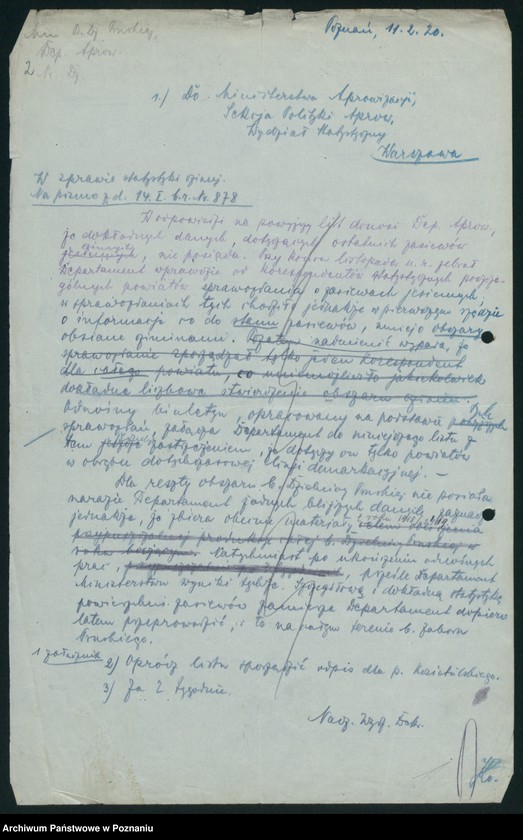 Min. b. Dz. Pruskiej,
Dep. Aprow.
2 N. Dz.
Poznań, 11.2.20.
1.) Do Ministerstwa Aprowizacji,
Sekcja Polityki Aprow.
Wydział Statystyczny
Warszawa
W sprawie statystyki zimej.
Na pismo z d. 14.I. b.r. Nr. 878
W odpowiedzi na powyższy list donosi Dep. Aprow.,
że dokładnych danych, dotyczących ostatnich zasiewów
zimowych
jesiennych, nie posiada. Przy końcu listopada u.r. zebrał
Departament wprawdzie od korespondentów statystycznych poszcze-
gólnych powiatów sprawozdania o zasiewach jesiennych,
w sprawozdaniach tych chodziło jednakże w pierwszym rzędzie
o informacje co do stanu zasiewów, mniej o obszary
obsiane oziminami. nadmienić wypada, że
sprawozdanie tylko jeden korespondent
dla całego powiatu, co uniemożliwiło jakiekolwiek
dokładne liczbowe stwierdzenie obszaru ozimin.
Odnośny biuletyn, opracowany na podstawie tych
sprawozdań załącza Departament do niniejszego listu z
tem zastrzeżeniem, że dotyczy on tylko powiatów
w obrębie dotychczasowej linji demarkacyjnej. –
Dla reszty obszaru b. Dzielnicy Pruskiej nie posiada
narazie Departament żadnych bliższych danych, zaznacza
jednakże, że zbiera obecnie materiały
b. Dzielnicy Pruskiej w
roku bieżącym natychmiast po ukończeniu odnośnych
prac, prześle Departament
Ministerstwu wyniki tychże. Szczegółową i dokładną statystykę
powierzchni zasiewów zamierza Departament dopiero
latem przeprowadzić, i to na całym terenie b. zaboru
Pruskiego.
1 załącznik
2) Oprócz listu sporządzić odpis dla p. Kościelskiego.
3) Za 2 tygodnie.
Nacz. Wydz.
Archiwum Państwowe w Poznaniu